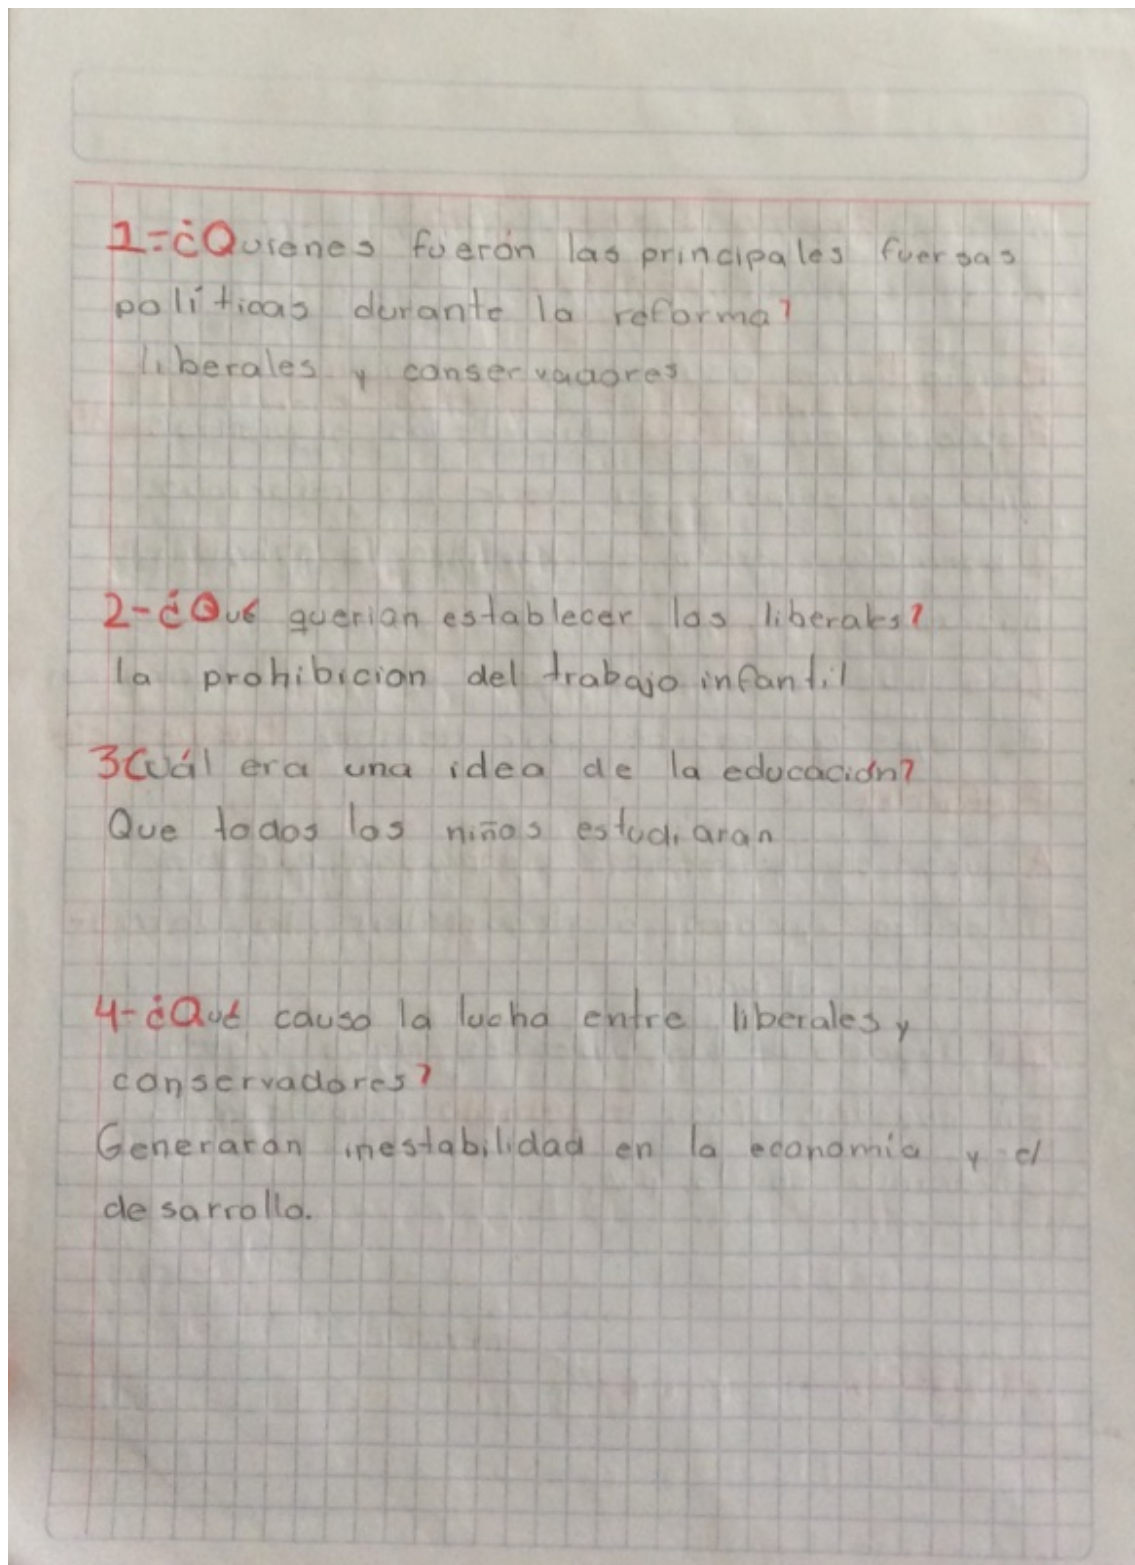 1=¿Quienes fuerón las principales fuersas
políticas durante la reforma?
liberales y conservadores
2-¿Qué querian establecer los liberales?
la prohibicion del trabajo infantil
3Cuál era una idea de la educación?
Que todos los niños estudiaran
4-¿Qué causo la lucha entre liberales y
conservadores?
Generaron inestabilidad en la economía y el
desarrollo.